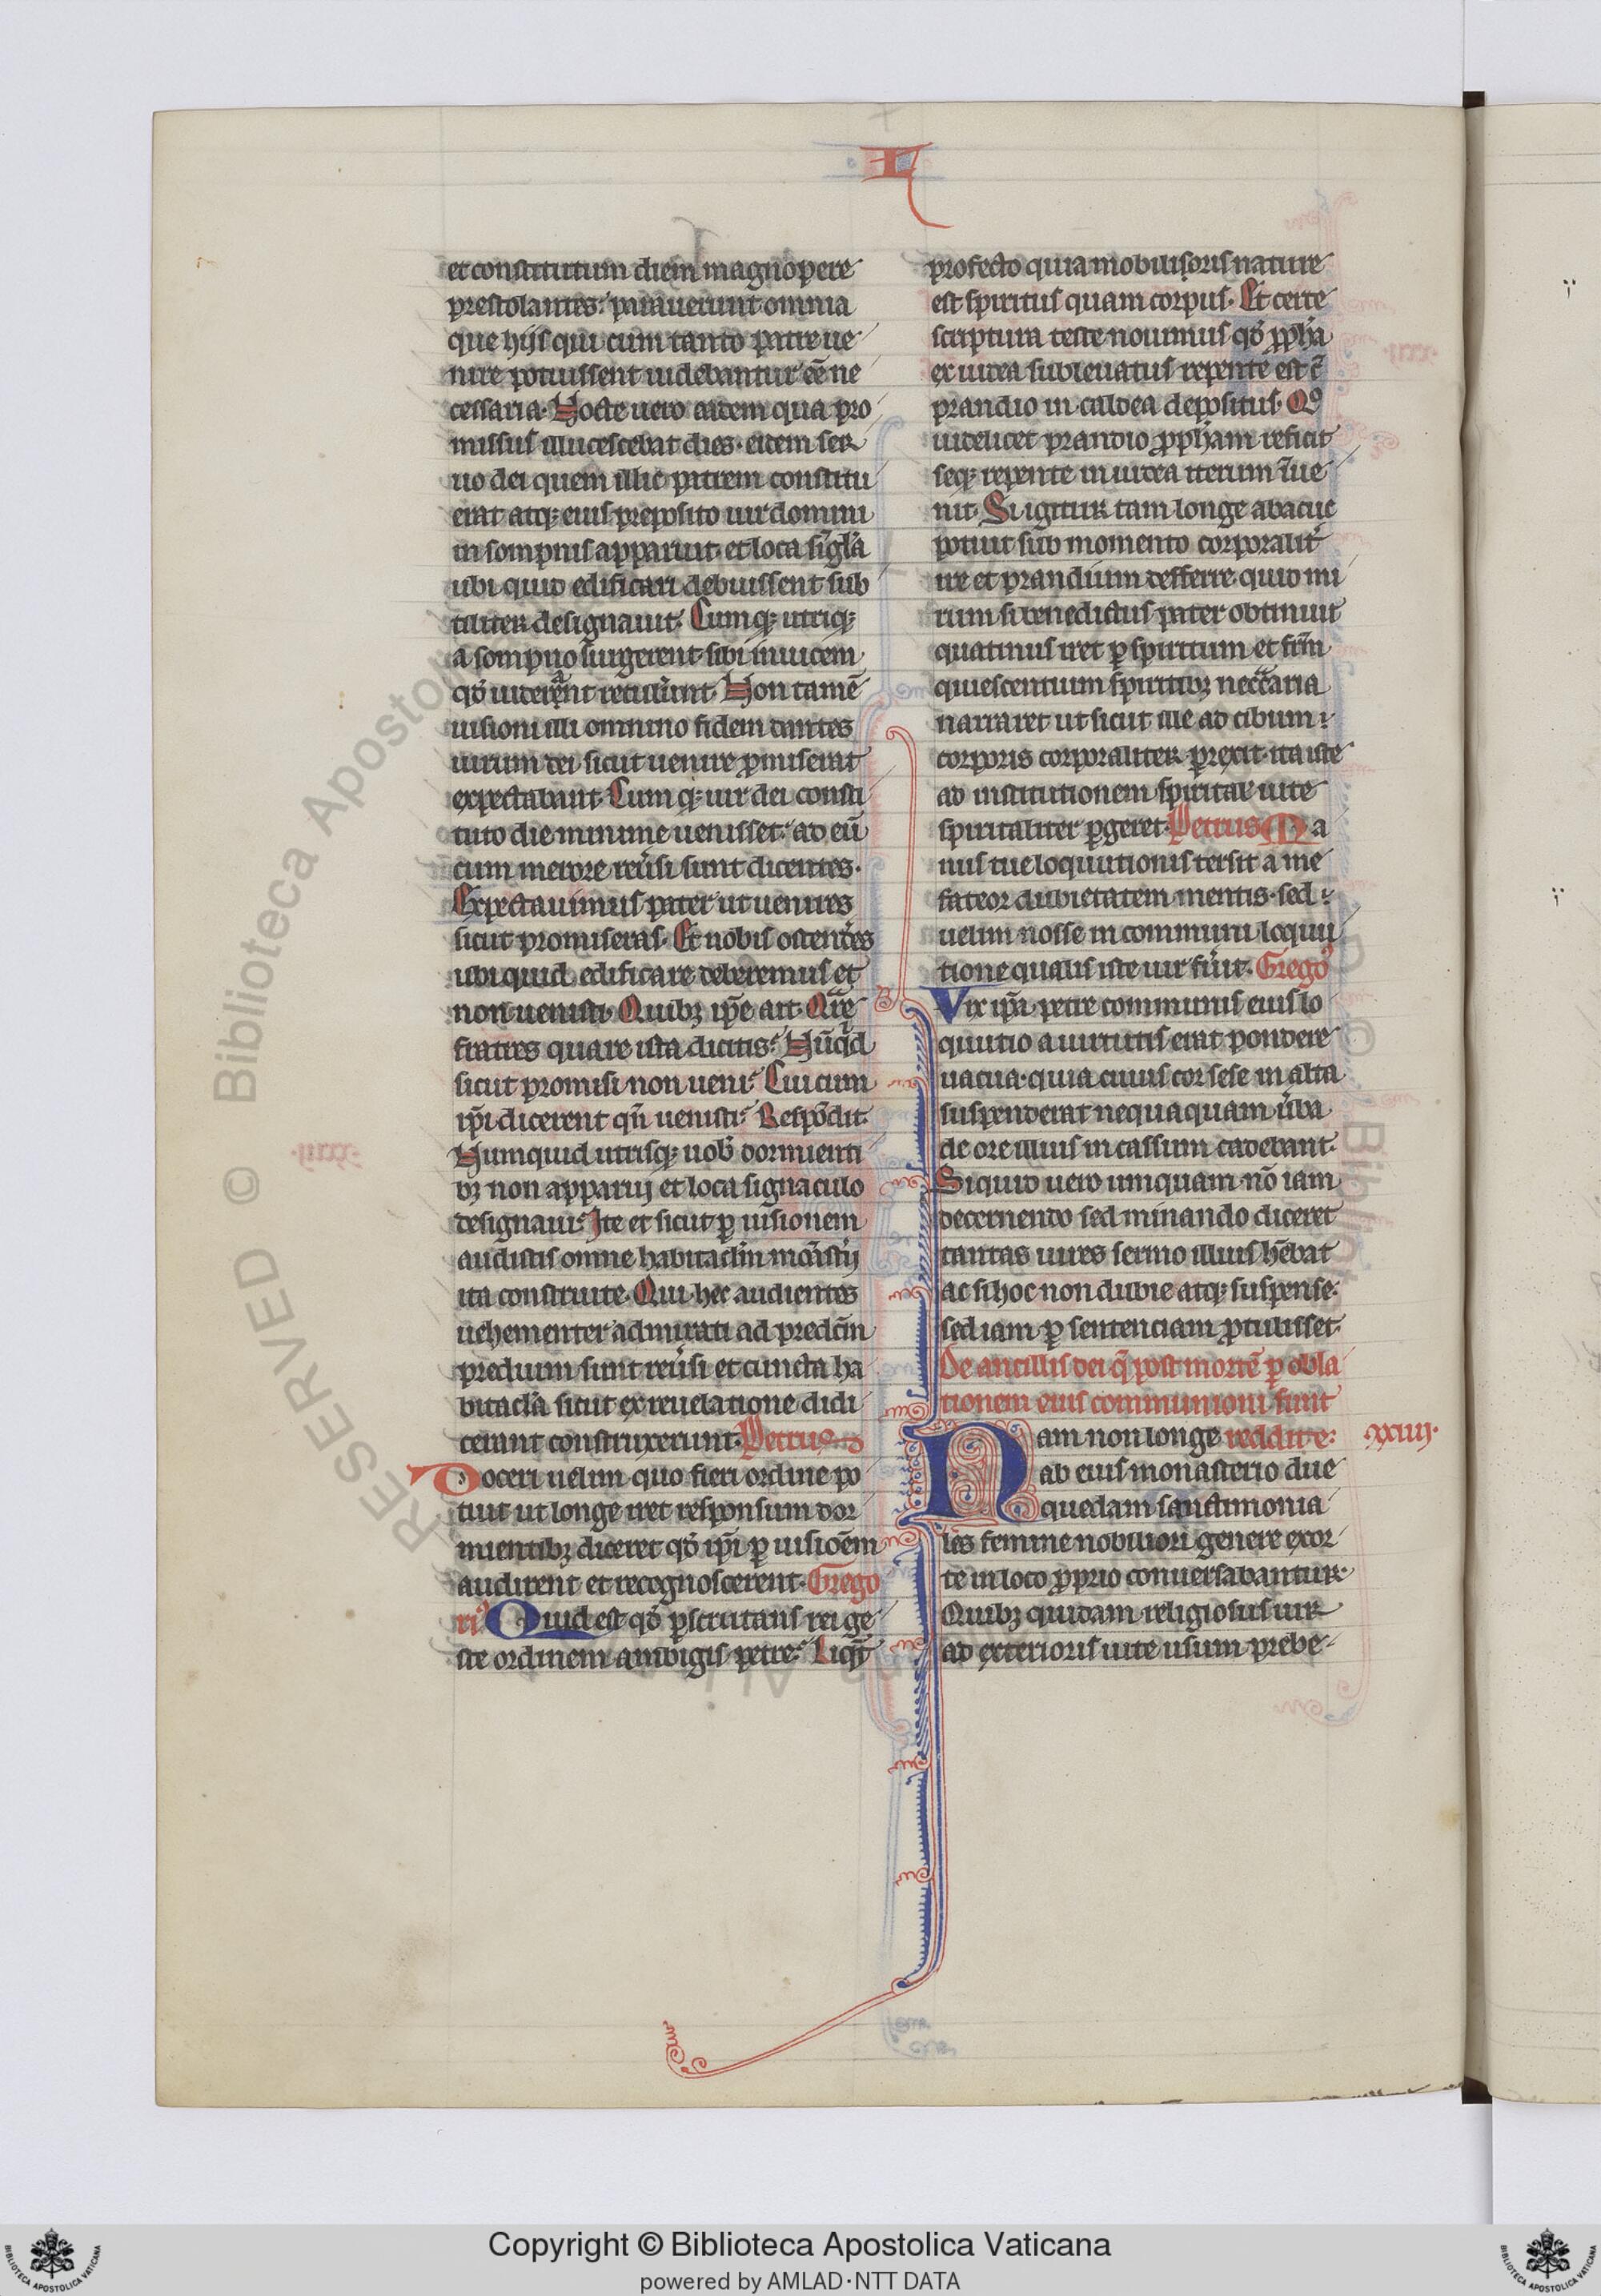 L
et constitutum diem magnopere
prestolantes: parauerunt omnia
que hijs qui cum tanto patre ue
nire potuissent uidebantur eē ne
cessaria. Nocte uero eadem qua pro
missus illucescebat dies. eidem ser
uo dei quem illic patrem constitu
erat atq; eius preposito uir domini
in sompnis apparuit. et loca sigl̄a
ubi quid edificari debuissent sub
tiliter designauit. Cumq; utriq;
a sompno surgerent sibi inuicem
qđ uiderant retulerunt. Non tamē
uisioni illi omnino fidem dantes
uirum dei sicut uenire promiserat
expectabant. Cumq; uir dei consti
tuto die minime uenisset: ad eū
cum merore reu͛si sunt dicentes.
Expectauimus pater ut uenires
sicut promiseras. Et nobis ostenderes
ubi quid edificare deberemus et
non uenisti. Quibȝ ip̄e ait. Qr̄e
fratres quare ista dicitis? Nūqd
sicut promisi non ueni? Cui cum
ip̄i dicerent qn̄ uenisti? Respōdit.
Numquid utrisq; uob̄ dormienti
bȝ non apparuj et loca signaculo
designaui? Ite et sicut ꝑ uisionem
audistis omne habitacl̄m mon̄stij
ita construite. Qui hec audientes
uehementer admirati ad predc̄m
predium sunt reu͛si et cuncta ha
bitacl̄a sicut ex reuelatione didi
cerant construxerunt. Petrus
Doceri uelim quo fieri ordine po
tuit ut longe iret responsum dor
mientibȝ diceret qđ ip̄i ꝑ uisiōem
audirent et recognoscerent. Grego
riꝰ Quid est qđ ꝑscrutans rei ge
ste ordinem ambigis petre? Liqꝫ
profecto quia mobilioris nature
est spiritus quam corpus. Et certe
scriptura teste nouimus qđ ꝓph̄a
ex iudea subleuatus repente est c̄
prandio in caldea depositus. Qꝰ
uidelicet prandio ꝓph̄am refecit
seq; repente in iudea iterum īue
nit. Si igitur tam longe abacuc
potuit sub momento corporalit͛
ire et prandium defferre. quid mi
rum si benedictus pater obtinuit
quatinus iret ꝑ spiritum et fr̄m
quiescentium spiritibȝ necc̄aria
narraret ut sicut ille ad cibum
corporis corporaliter perrexit. ita iste
ad institutionem spiritalē uite
spiritaliter ꝑgeret. Petrus Ma
nus tue loquutionis tersit a me
fateor dubietatem mentis. sed
uelim nosse in communi loquu
tione qualis iste uir fu͛it. Gregoꝰ
Vix ip̄a petre communis eius lo
quutio a uirtutis erat pondere
uacua. quia cuius cor sese in alta
suspenderat nequaquam u͛ba
de ore illius in cassum cadebant.
Siquid uero umquam nō iam
decernendo sed minando diceret
tantas uires sermo illius hēbat
ac si hoc non dubie atq; suspense.
sed iam ꝑ sentenciam ꝓtulisset.
De ancillis dei q̄ post mortē ꝑ obla
tionem eius communioni sunt
Nam non longe reddite: xxiij.
ab eius monasterio due
quedam sanctimonia
les femine nobiliori genere exor
te in loco ꝓprio conuersabantur.
Quibȝ quidam religiosus uir
ad exterioris uite usum prebe
RESERVED © Biblioteca Apostolica
Copyright © Biblioteca Apostolica Vaticana
powered by AMLAD·NTT DATA
BIBLIOTECA APOSTOLICA VATICANA
BIBLIOTECA APOSTOLICA VATICANA